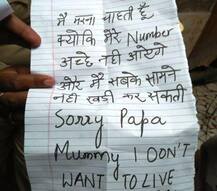 मैं मरना चाहती हूँ
क्योकि मेरे Number
अच्छे नही आएंगे
और मैं सबके सामने
नही खड़ी कर सकती
Sorry Papa
Mummy I DON'T
WANT TO LIVE